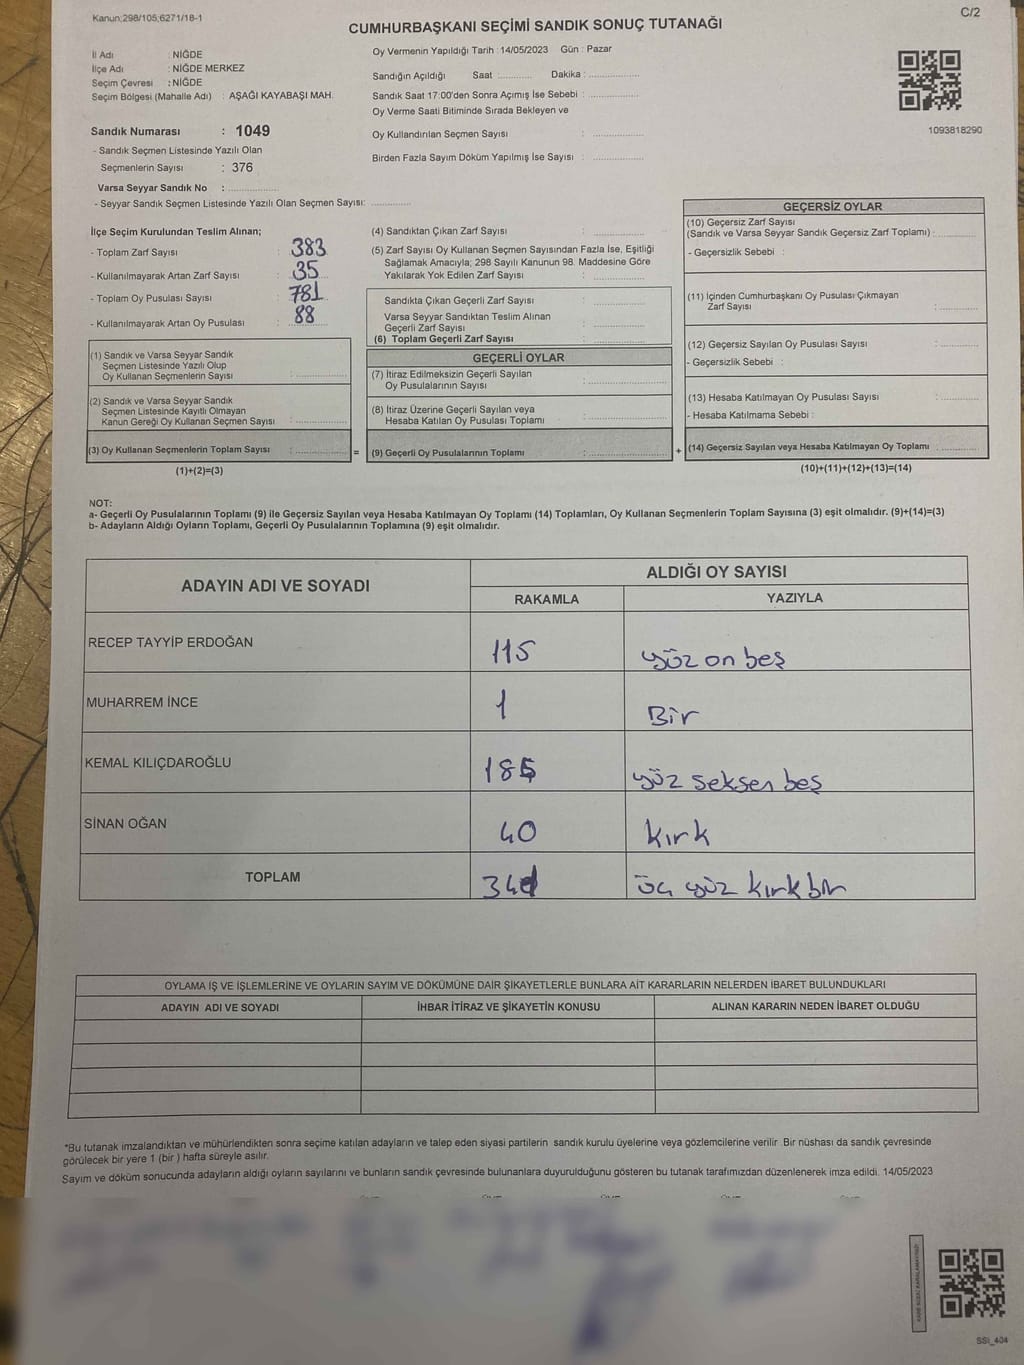 Kanun;298/105;6271/18-1
C/2
CUMHURBAŞKANI SEÇİMİ SANDIK SONUÇ TUTANAĞI
İl Adı : NİĞDE
İlçe Adı : NİĞDE MERKEZ
Seçim Çevresi : NİĞDE
Seçim Bölgesi (Mahalle Adı) : AŞAĞI KAYABAŞI MAH.
Sandık Numarası : 1049
- Sandık Seçmen Listesinde Yazılı Olan
Seçmenlerin Sayısı : 376
Varsa Seyyar Sandık No : ..............
- Seyyar Sandık Seçmen Listesinde Yazılı Olan Seçmen Sayısı: ............
Oy Vermenin Yapıldığı Tarih : 14/05/2023 Gün : Pazar
Sandığın Açıldığı Saat ........... Dakika : ................
Sandık Saat 17:00'den Sonra Açımış İse Sebebi : ................
Oy Verme Saati Bitiminde Sırada Bekleyen ve
Oy Kullandırılan Seçmen Sayısı : ................
Birden Fazla Sayım Döküm Yapılmış İse Sayısı : ................
1093818290
İlçe Seçim Kurulundan Teslim Alınan;
- Toplam Zarf Sayısı : 383
- Kullanılmayarak Artan Zarf Sayısı : 35
- Toplam Oy Pusulası Sayısı : 781
- Kullanılmayarak Artan Oy Pusulası : 88
(1) Sandık ve Varsa Seyyar Sandık
Seçmen Listesinde Yazılı Olup
Oy Kullanan Seçmenlerin Sayısı : ................
(2) Sandık ve Varsa Seyyar Sandık
Seçmen Listesinde Kayıtlı Olmayan
Kanun Gereği Oy Kullanan Seçmen Sayısı : ................
(3) Oy Kullanan Seçmenlerin Toplam Sayısı : ................
(1)+(2)=(3)
=
(4) Sandıktan Çıkan Zarf Sayısı : ................
(5) Zarf Sayısı Oy Kullanan Seçmen Sayısından Fazla İse, Eşitliği
Sağlamak Amacıyla; 298 Sayılı Kanunun 98. Maddesine Göre
Yakılarak Yok Edilen Zarf Sayısı : ................
Sandıkta Çıkan Geçerli Zarf Sayısı : ................
Varsa Seyyar Sandıktan Teslim Alınan
Geçerli Zarf Sayısı : ................
(6) Toplam Geçerli Zarf Sayısı : ................
GEÇERLİ OYLAR
(7) İtiraz Edilmeksizin Geçerli Sayılan
Oy Pusulalarının Sayısı : ................
(8) İtiraz Üzerine Geçerli Sayılan veya
Hesaba Katılan Oy Pusulası Toplamı : ................
(9) Geçerli Oy Pusulalarının Toplamı : ................
+
GEÇERSİZ OYLAR
(10) Geçersiz Zarf Sayısı
(Sandık ve Varsa Seyyar Sandık Geçersiz Zarf Toplamı) : ............
- Geçersizlik Sebebi :
(11) İçinden Cumhurbaşkanı Oy Pusulası Çıkmayan
Zarf Sayısı : ............
(12) Geçersiz Sayılan Oy Pusulası Sayısı : ............
- Geçersizlik Sebebi :
(13) Hesaba Katılmayan Oy Pusulası Sayısı : ............
- Hesaba Katılmama Sebebi :
(14) Geçersiz Sayılan veya Hesaba Katılmayan Oy Toplamı : ............
(10)+(11)+(12)+(13)=(14)
NOT:
a- Geçerli Oy Pusulalarının Toplamı (9) ile Geçersiz Sayılan veya Hesaba Katılmayan Oy Toplamı (14) Toplamları, Oy Kullanan Seçmenlerin Toplam Sayısına (3) eşit olmalıdır. (9)+(14)=(3)
b- Adayların Aldığı Oyların Toplamı, Geçerli Oy Pusulalarının Toplamına (9) eşit olmalıdır.
ADAYIN ADI VE SOYADI
ALDIĞI OY SAYISI
RAKAMLA YAZIYLA
RECEP TAYYİP ERDOĞAN 115 yüz on beş
MUHARREM İNCE 1 Bir
KEMAL KILIÇDAROĞLU 185 yüz seksen beş
SİNAN OĞAN 40 kırk
TOPLAM 341 üç yüz kırk bir
OYLAMA İŞ VE İŞLEMLERİNE VE OYLARIN SAYIM VE DÖKÜMÜNE DAİR ŞİKAYETLERLE BUNLARA AİT KARARLARIN NELERDEN İBARET BULUNDUKLARI
ADAYIN ADI VE SOYADI İHBAR İTİRAZ VE ŞİKAYETİN KONUSU ALINAN KARARIN NEDEN İBARET OLDUĞU
*Bu tutanak imzalandıktan ve mühürlendikten sonra seçime katılan adayların ve talep eden siyasi partilerin sandık kurulu üyelerine veya gözlemcilerine verilir. Bir nüshası da sandık çevresinde
görülecek bir yere 1 (bir ) hafta süreyle asılır.
Sayım ve döküm sonucunda adayların aldığı oyların sayılarını ve bunların sandık çevresinde bulunanlara duyurulduğunu gösteren bu tutanak tarafımızdan düzenlenerek imza edildi. 14/05/2023
SSt_404